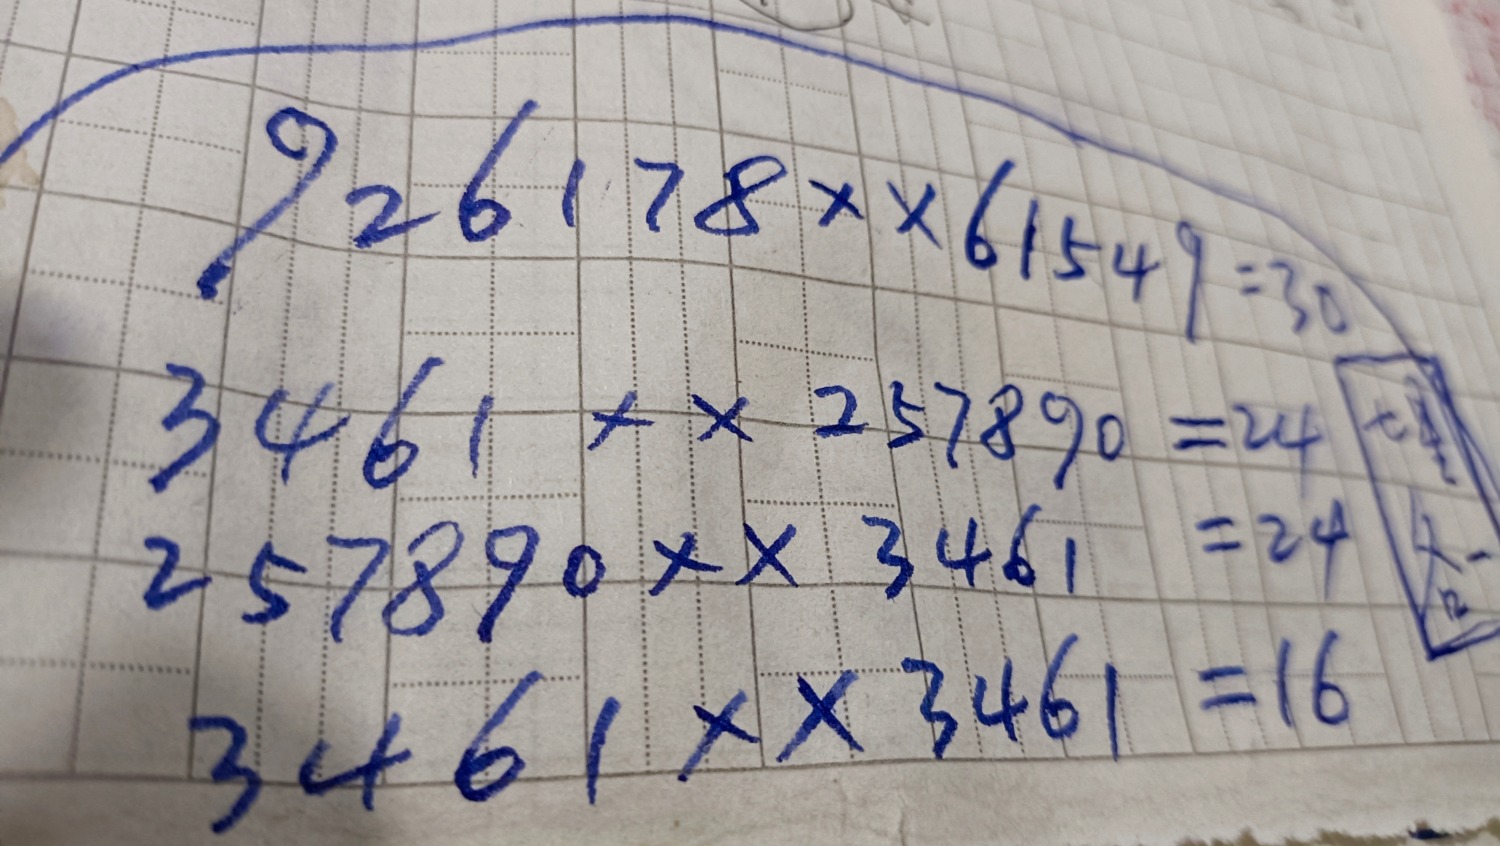 926178××61549=30
3461××257890=24
257890××3461=24
3461××3461=16